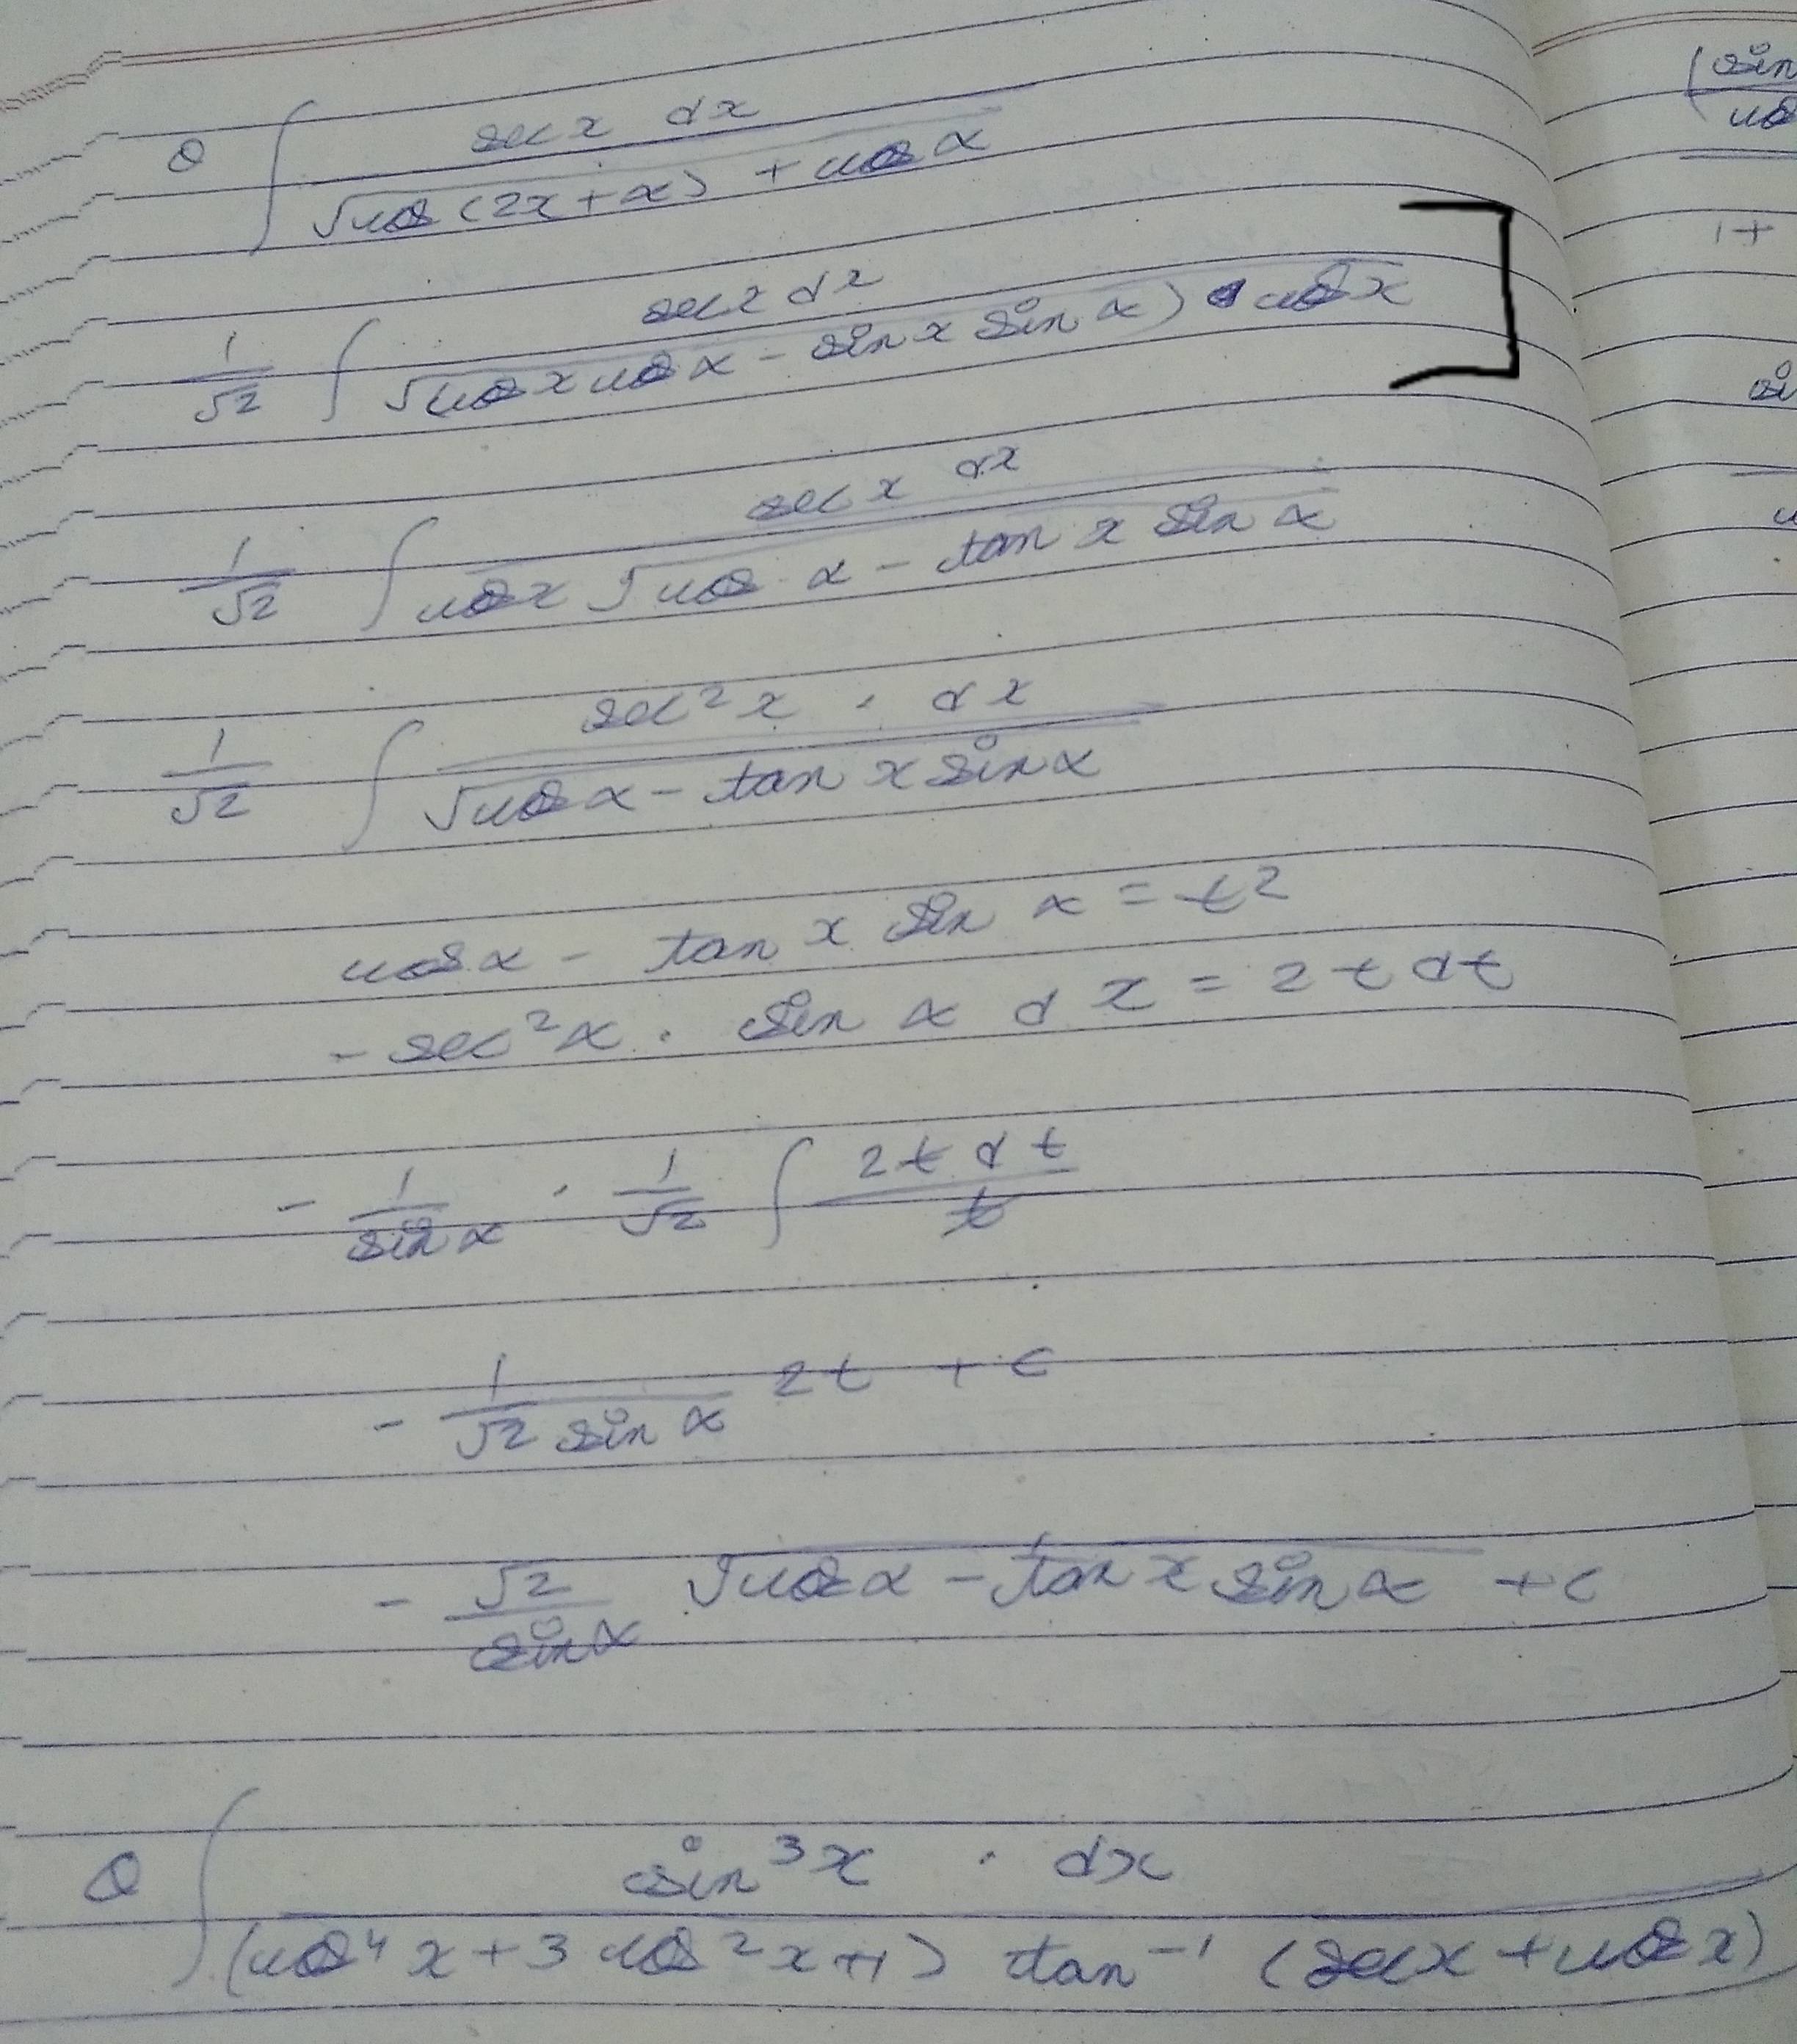 Q ∫ sec x dx / √cos (2x + α) + cos α
1/√2 ∫ sec x dx / √(cos x cos α - sin x sin α) cos x
1/√2 ∫ sec x dx / cos x √cos α - tan x sin α
1/√2 ∫ sec² x · dx / √cos α - tan x sin α
cos α - tan x sin α = t²
- sec² x · sin α dx = 2t dt
- 1/sin α · 1/√2 ∫ 2t dt / t
- 1/√2 sin α 2t + c
- √2/sin α √cos α - tan x sin α + c
Q ∫ sin³ x · dx / (cos⁴ x + 3 cos² x + 1) tan⁻¹ (sec x + cos x)
(sin
cos
1+